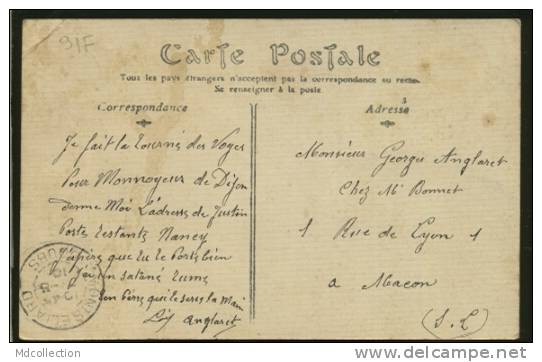 91F
Carte Postale
Tous les pays étrangers n'acceptent pas la correspondance au recto
Se renseigner à la poste
Correspondance
Je fait la tourné des Voges
Pour Monnoyeur de Dijon
donne Moi L'adresse de Justin
Poste restante Nancy
J'espère que tu te Portes bien
J'ai un satané rume
la Main
Anglaret
Adresse
3
Monsieur Georges Anglaret
Chez Mr Bonnet
1 Rue de Lyon 1
a Macon
(S. L)
MONTBELIARD
DOUBS
MDCollection
www.delcampe.net